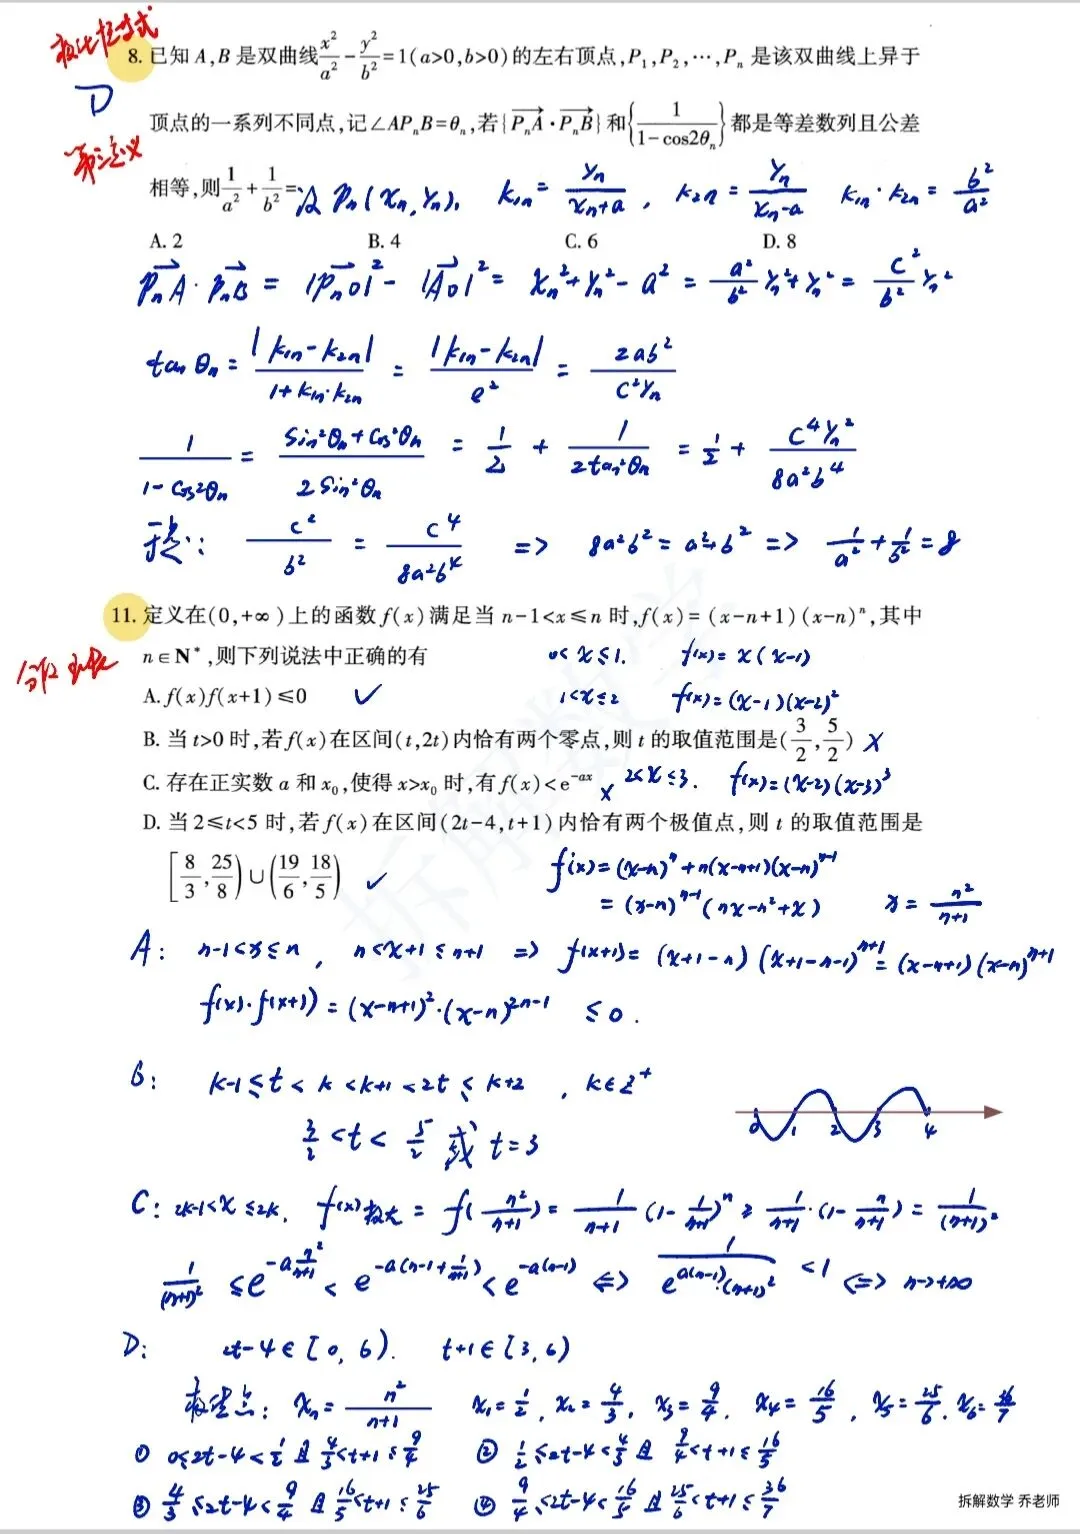 极化恒等式
8. 已知 A,B 是双曲线x²/a² - y²/b² = 1(a>0,b>0)的左右顶点,P₁,P₂,…,Pₙ 是该双曲线上异于
D
顶点的一系列不同点,记∠APₙB=θₙ,若{PₙA·PₙB}和{1/(1-cos2θₙ)}都是等差数列且公差
第三定义
相等,则1/a² + 1/b² =
设 Pₙ(xₙ,yₙ), k₁ₙ = yₙ/(xₙ+a), k₂ₙ = yₙ/(xₙ-a) k₁ₙ·k₂ₙ = b²/a²
A. 2 B. 4 C. 6 D. 8
PₙA·PₙB = |PₙO|² - |AO|² = xₙ²+yₙ²-a² = a²/b² yₙ²+yₙ² = c²/b² yₙ²
tanθₙ = |k₁ₙ-k₂ₙ|/(1+k₁ₙ·k₂ₙ) = |k₁ₙ-k₂ₙ|/e² = 2ab²/(c²yₙ)
1/(1-cos2θₙ) = (sin²θₙ+cos²θₙ)/(2sin²θₙ) = 1/2 + 1/(2tan²θₙ) = 1/2 + c⁴yₙ²/(8a²b⁴)
于是: c²/b² = c⁴/(8a²b⁴) => 8a²b² = a²+b² => 1/a²+1/b² = 8
11. 定义在(0,+∞)上的函数 f(x)满足当 n-1<x≤n 时,f(x)=(x-n+1)(x-n)ⁿ,其中
分段函数
n∈N*,则下列说法中正确的有 0<x≤1. f(x)=x(x-1)
A. f(x)f(x+1)≤0 ✓ 1<x≤2 f(x)=(x-1)(x-2)²
B. 当 t>0 时,若 f(x)在区间(t,2t)内恰有两个零点,则 t 的取值范围是(3/2,5/2) ×
C. 存在正实数 a 和 x₀,使得 x>x₀ 时,有 f(x)<e⁻ᵃˣ × 2<x≤3. f(x)=(x-2)(x-3)³
D. 当 2≤t<5 时,若 f(x)在区间(2t-4,t+1)内恰有两个极值点,则 t 的取值范围是
[8/3,25/8)∪(19/6,18/5) ✓ f'(x)=(x-n)ⁿ+n(x-n+1)(x-n)ⁿ⁻¹
=(x-n)ⁿ⁻¹(nx-n²+x) x=n²/(n+1)
A: n-1<x≤n, n<x+1≤n+1 => f(x+1)=(x+1-n)(x+1-n-1)ⁿ⁺¹=(x-n+1)(x-n)ⁿ⁺¹
f(x)·f(x+1)=(x-n+1)²·(x-n)²ⁿ⁻¹ ≤0.
B: k-1≤t<k<k+1<2t≤k+2, k∈Z⁺
0 1 2 3 4
3/2<t<5/2 或 t=3
C: 2k-1<x≤2k, f(x)极大=f(n²/(n+1))=1/(n+1)(1-1/(n+1))ⁿ≥1/(n+1)·(1-n/(n+1))=1/(n+1)²
1/(n+1)² ≤e^(-a n²/(n+1))<e^(-a(n-1+1/(n+1)))<e^(-a(n-1)) <=> 1/(e^(a(n-1))·(n+1)²) <1 <=> n->+∞
D: 2t-4∈[0,6). t+1∈[3,6)
极值点: xₙ=n²/(n+1) x₁=1/2, x₂=4/3, x₃=9/4, x₄=16/5, x₅=25/6. x₆=36/7
① 0≤2t-4<1/2 且 4/3<t+1≤9/4 ② 1/2≤2t-4<4/3 且 9/4<t+1≤16/5
③ 4/3≤2t-4<9/4 且 16/5<t+1≤25/6 ④ 9/4≤2t-4<16/5 且 25/6<t+1≤36/7
拆解数学 乔老师
拆解数学